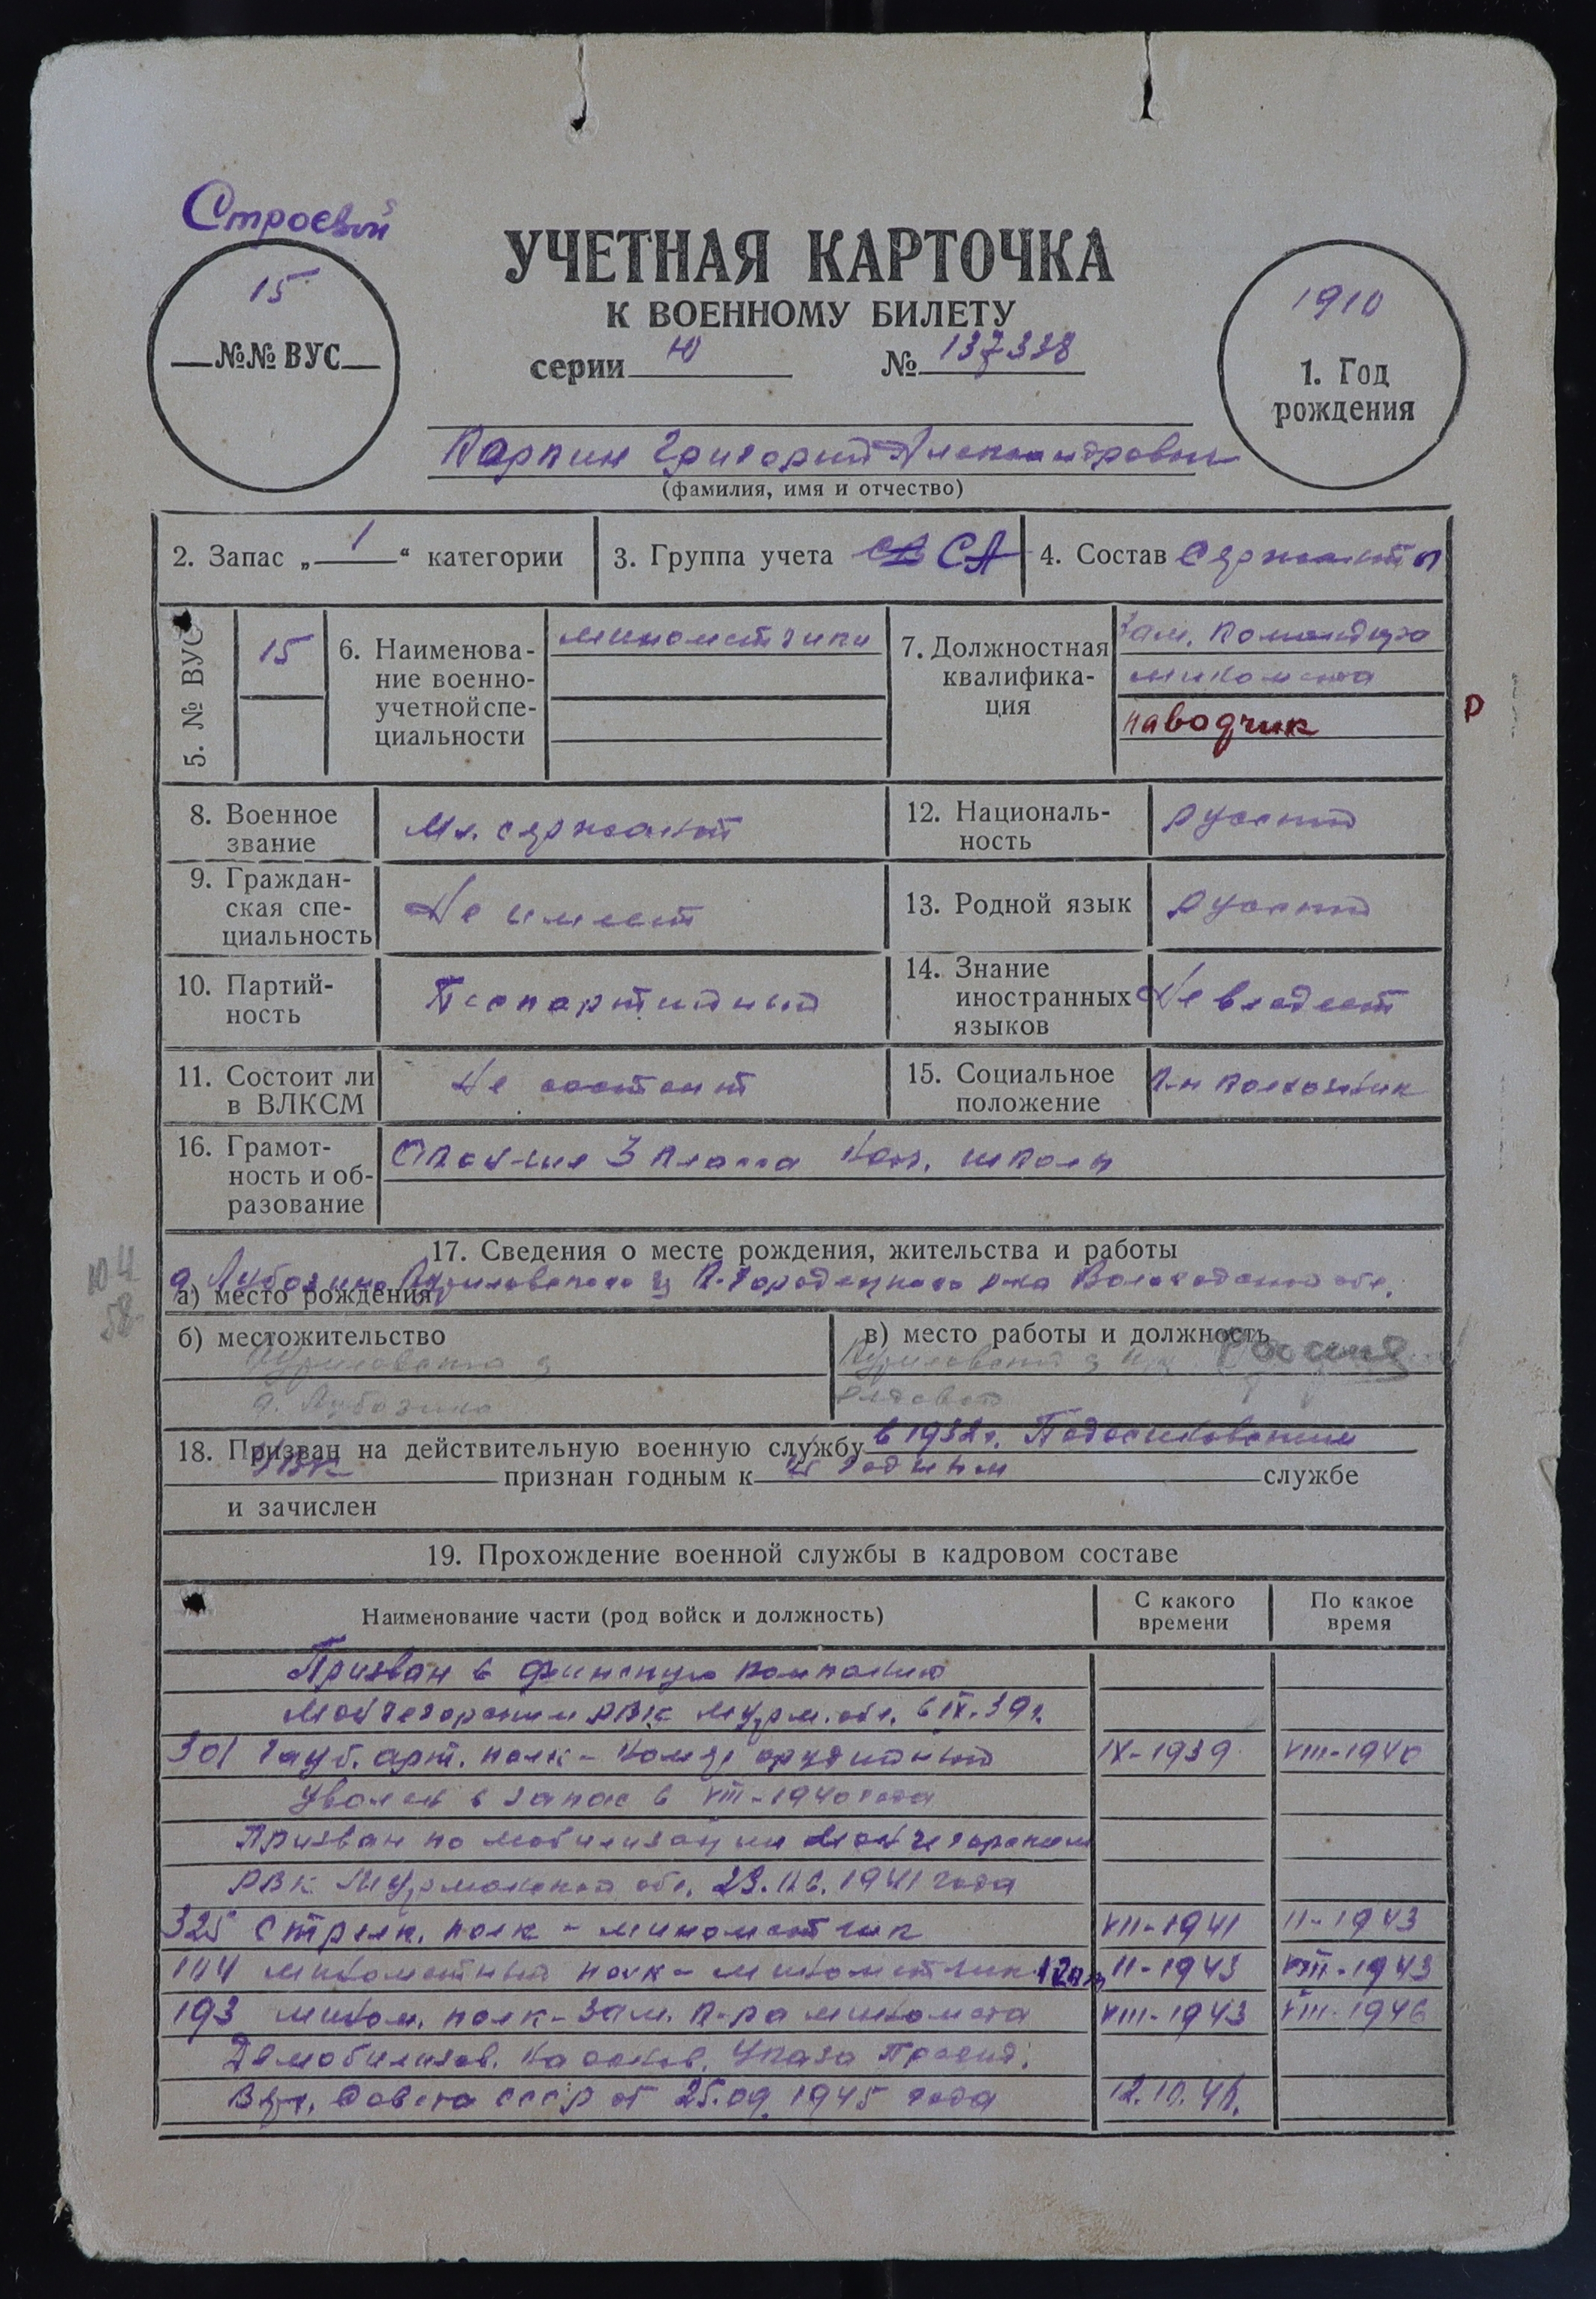 Строевой
15
№№ ВУС
УЧЕТНАЯ КАРТОЧКА
К ВОЕННОМУ БИЛЕТУ
серии Ю № 137338
1910
1. Год
рождения
Карпин Григорий Александрович
(фамилия, имя и отчество)
2. Запас „ 1 “ категории
3. Группа учета СА
4. Состав Сержанты
5. № ВУС
15
6. Наименова-
ние военно-
учетной спе-
циальности
минометчики
7. Должностная
квалифика-
ция
Зам. командира
миномета
наводчик
Р
8. Военное
звание
Мл. сержант
12. Националь-
ность
русский
9. Граждан-
ская спе-
циальность
Не имеет
13. Родной язык
русский
10. Партий-
ность
Беспартийный
14. Знание
иностранных
языков
Не владеет
11. Состоит ли
в ВЛКСМ
Не состоит
15. Социальное
положение
к-н колхозник
16. Грамот-
ность и об-
разование
3 класса нач. школы
17. Сведения о месте рождения, жительства и работы
а) место рождения
д. К-Городецкого р-на Вологодской обл.
б) местожительство
в) место работы и должность
рядовой
18. Призван на действительную военную службу в 1932г. Подосиновским
РВК признан годным к службе
и зачислен
19. Прохождение военной службы в кадровом составе
Наименование части (род войск и должность)
С какого
времени
По какое
время
Призван в финскую компанию
Мончегорским РВК Мурм. обл. в IX.39г.
301 гауб. арт. полк - орудийный IX-1939 VIII-1940
Уволен в запас в VIII-1940 года
Призван по мобилизации Мончегорским
РВК Мурманской обл. 23.06.1941 года
325 стрелк. полк - минометчик VII-1941 II-1943
144 минометный полк - минометчик II-1943 VIII-1943
193 мином. полк - зам. к-ра миномета VIII-1943 VIII-1946
Демобилизов. на основ. Указа Презид.
Верх. Совета СССР от 25.09.1945 года